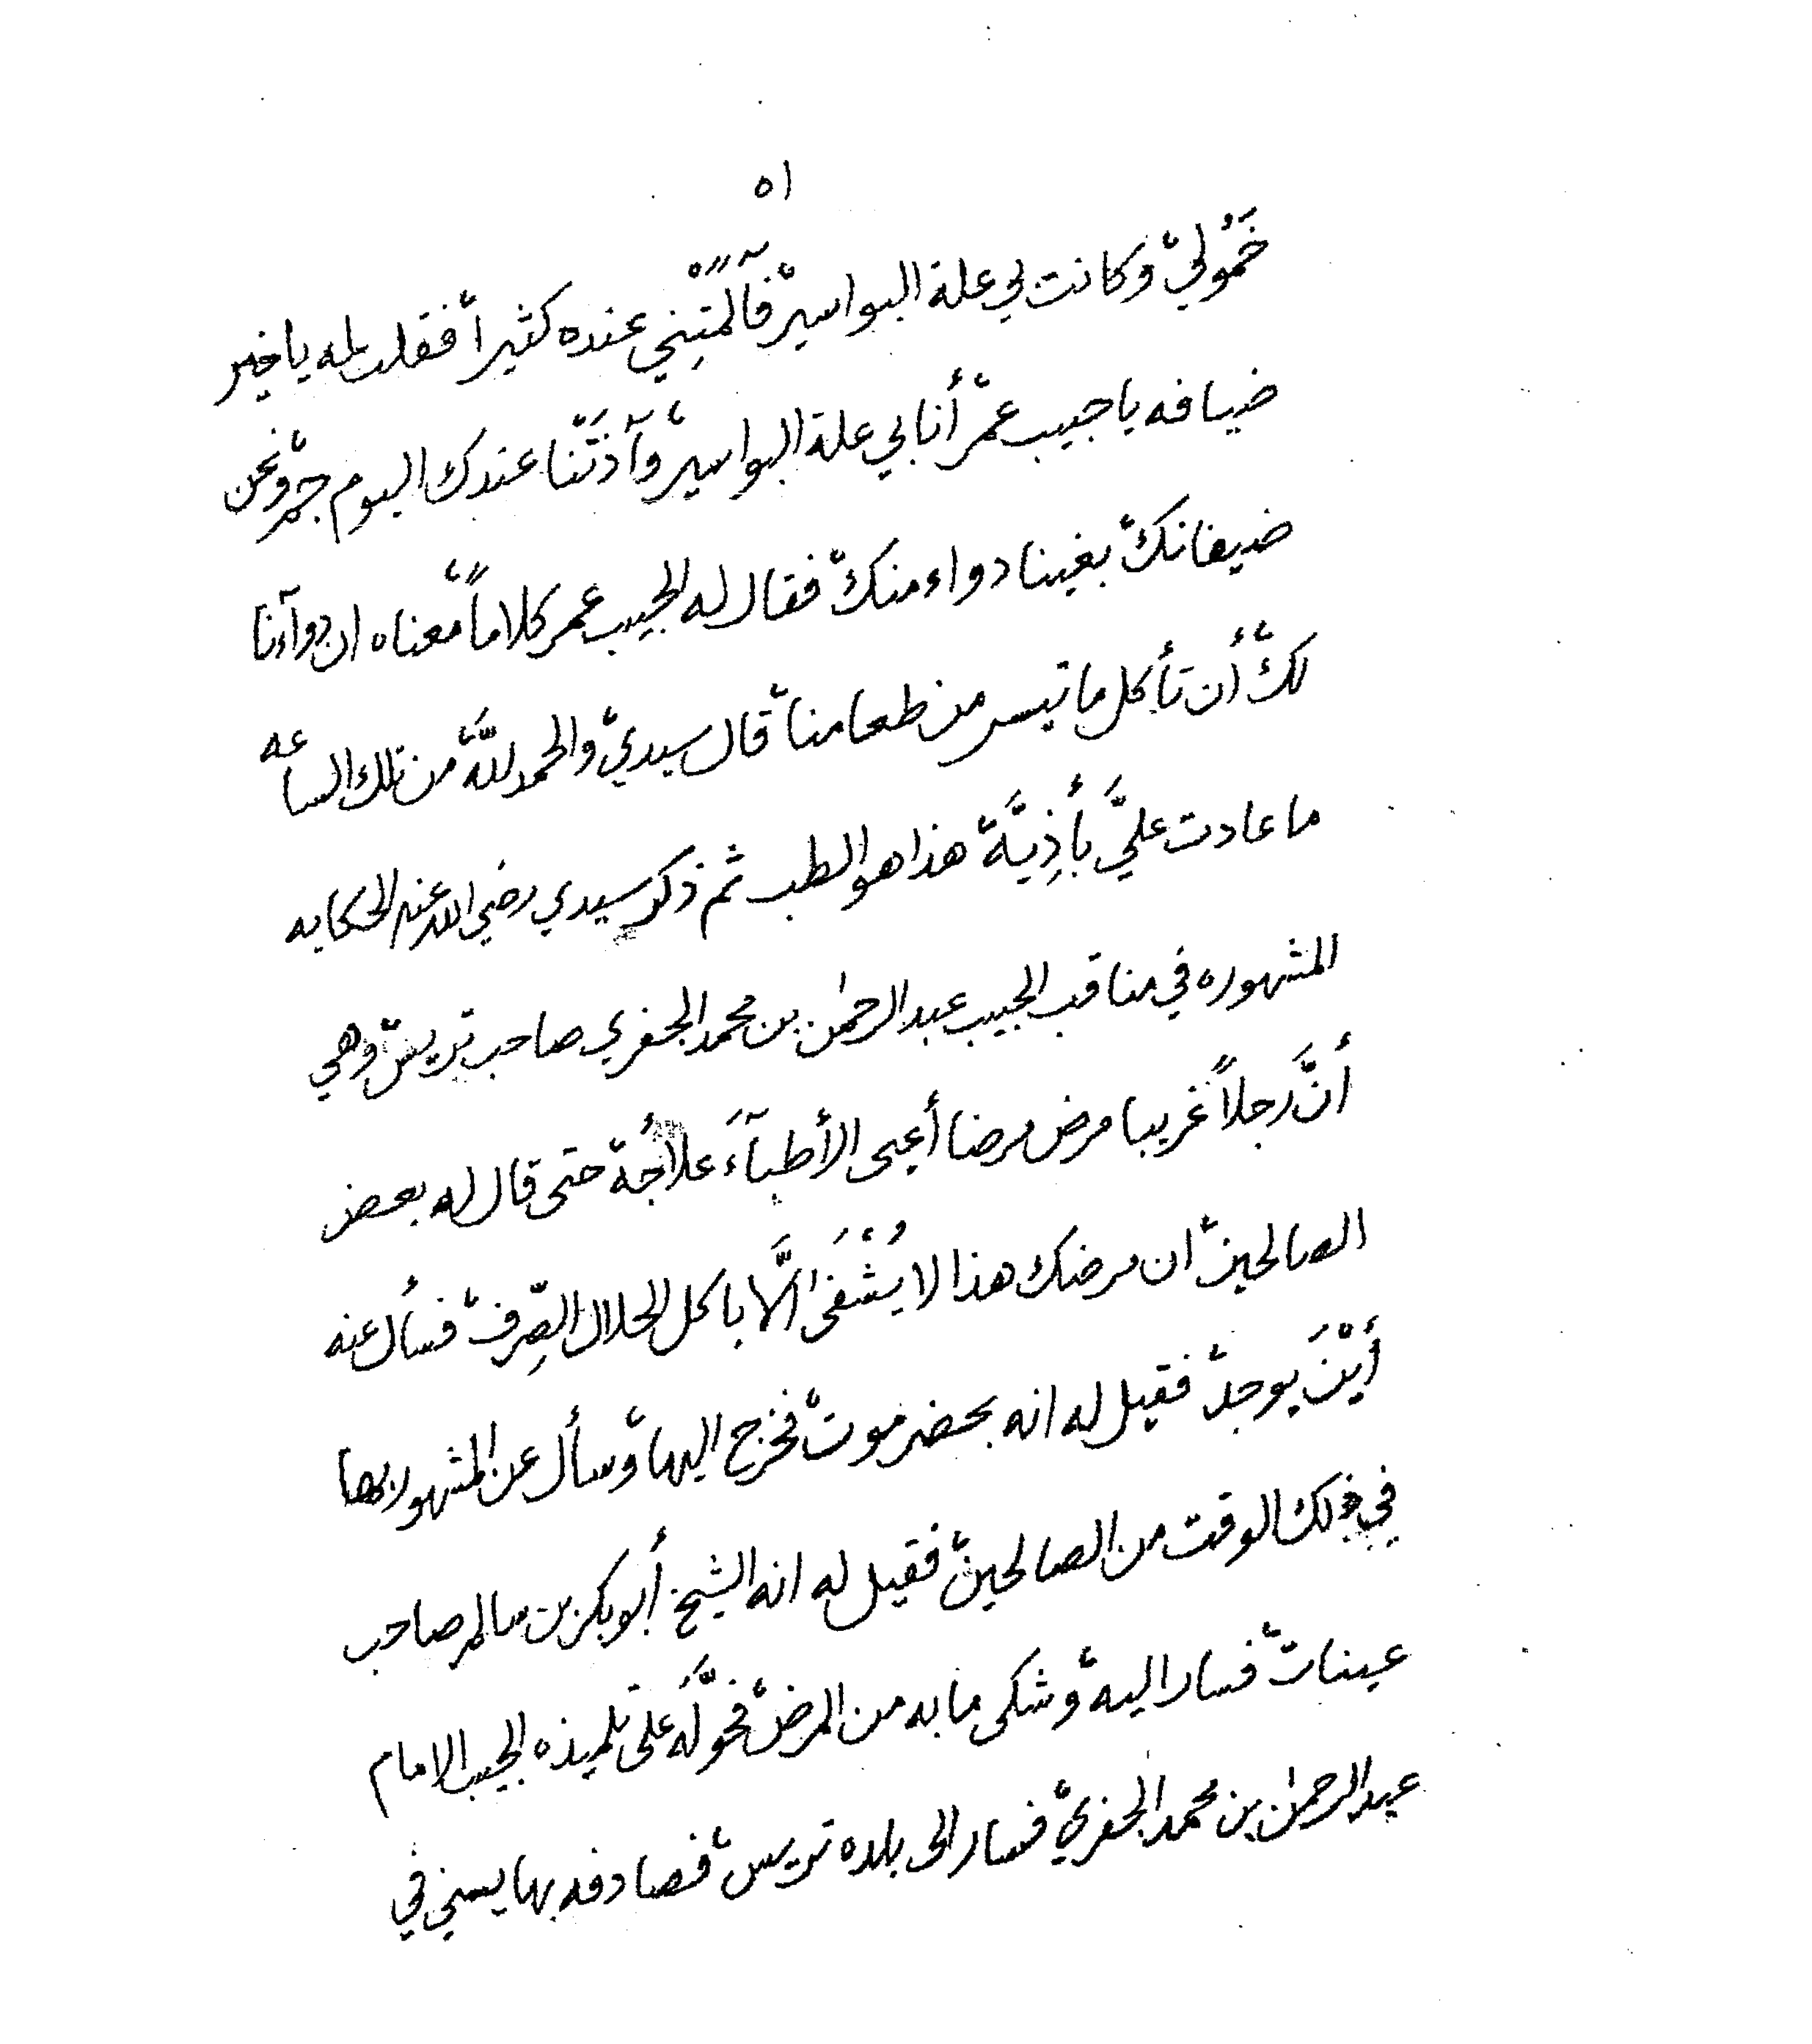 ٥١
خَمُولي، وكانت بي علة البواسير، فآلَمَتِني عنده كثيراً، فقلت له يا خير
ضيافه يا حبيب عمر، أنا بي علة البواسير، وآذَتْنا عندك اليوم جم، ونحن
ضيفانك، بغينا دواء منك، فقال له الحبيب عمر كلاماً، معناه ان دوآءنا
لك، أن تأكل ما تيسر من طعامنا، قال سيدي، والحمد للَّه، من تلك الساعه
ما عادت عليَّ بأَذِيَّة هذا هو الطب ثم ذكر سيدي رضي الله عنه الحكايه
المشهوره في مناقب الحبيب عبدالرحمٰن بن محمد الجفري صاحب تريس، وهي
أنَّ رجلاً غريبا مرض مرضا أعيى الأطبآءَ علاجُهُ حتى قال له بعض
الصالحين، ان مرضك هذا لا يُشْفَىٰ الَّا باكل الحلال الصِّرف، فسأل عنه
أَيْنَ يوجد، فقيل له انه بحضرموت، فخرج اليها، وسأل عن المشهور بها
في ذلك الوقت من الصالحين، فقيل له انه الشيخ أبوبكر بن سالم صاحب
عينات، فسار اليه، وشكى ما به من المرض، فحوَّلَه على تلميذه الحبيب الامام
عبدالرحمٰن بن محمد الجفري، فسار الى بلده تريس، فصادفه بها يسني في